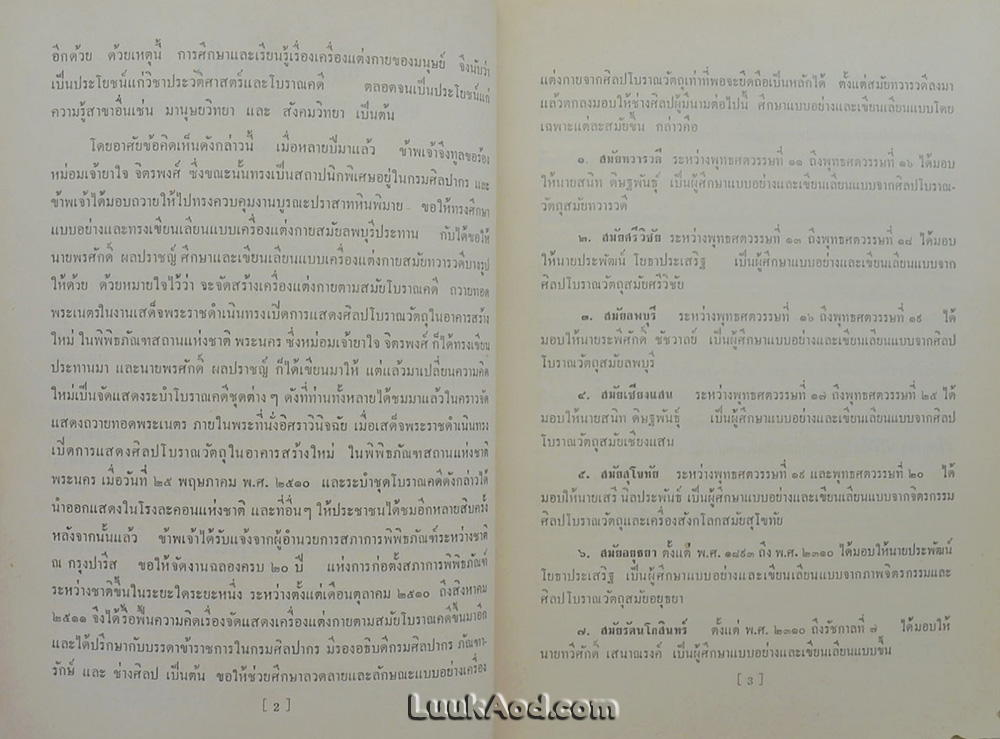 อีกด้วย ด้วยเหตุนี้ การศึกษาและเรียนรู้เรื่องเครื่องแต่งกายของมนุษย์ จึงนับว่า
เป็นประโยชน์แก่วิชาประวัติศาสตร์และโบราณคดี ตลอดจนเป็นประโยชน์แก่
ความรู้สาขาอื่นเช่น มานุษยวิทยา และ สังคมวิทยา เป็นต้น
โดยอาศัยข้อคิดเห็นดังกล่าวนี้ เมื่อหลายปีมาแล้ว ข้าพเจ้าจึงทูลขอร้อง
หม่อมเจ้ายาใจ จิตรพงศ์ ซึ่งขณะนั้นทรงเป็นสถาปนิกพิเศษอยู่ในกรมศิลปากร และ
ข้าพเจ้าได้มอบถวายให้ไปทรงควบคุมงานบูรณะปราสาทหินพิมาย ขอให้ทรงศึกษา
แบบอย่างและทรงเขียนเลียนแบบเครื่องแต่งกายสมัยลพบุรีประทาน กับได้ขอให้
นายพรศักดิ์ ผลปราชญ์ ศึกษาและเขียนเลียนแบบเครื่องแต่งกายสมัยทวารวดีบางรูป
ให้ด้วย ด้วยหมายใจไว้ว่า จะจัดสร้างเครื่องแต่งกายตามสมัยโบราณคดี ถวายทอด
พระเนตรในงานเสด็จพระราชดำเนินทรงเปิดการแสดงศิลปโบราณวัตถุในอาคารสร้าง
ใหม่ ในพิพิธภัณฑสถานแห่งชาติ พระนคร ซึ่งหม่อมเจ้ายาใจ จิตรพงศ์ ก็ได้ทรงเขียน
ประทานมา และนายพรศักดิ์ ผลปราชญ์ ก็ได้เขียนมาให้ แต่แล้วมาเปลี่ยนความคิด
ใหม่เป็นจัดแสดงระบำโบราณคดีชุดต่าง ๆ ดังที่ท่านทั้งหลายได้ชมมาแล้วในคราวจัด
แสดงถวายทอดพระเนตร ภายในพระที่นั่งอิศราวินิจฉัย เมื่อเสด็จพระราชดำเนินทรง
เปิดการแสดงศิลปโบราณวัตถุในอาคารสร้างใหม่ ในพิพิธภัณฑสถานแห่งชาติ
พระนคร เมื่อวันที่ ๒๕ พฤษภาคม พ.ศ. ๒๕๑๐ และระบำชุดโบราณคดีดังกล่าวได้
นำออกแสดงในโรงละคอนแห่งชาติ และที่อื่นๆ ให้ประชาชนได้ชมอีกหลายสิบครั้ง
หลังจากนั้นแล้ว ข้าพเจ้าได้รับแจ้งจากผู้อำนวยการสภาการพิพิธภัณฑ์ระหว่างชาติ
ณ กรุงปารีส ขอให้จัดงานฉลองครบ ๒๐ ปี แห่งการก่อตั้งสภาการพิพิธภัณฑ์
ระหว่างชาติขึ้นในระยะใดระยะหนึ่ง ระหว่างตั้งแต่เดือนตุลาคม ๒๕๑๐ ถึงสิงหาคม
๒๕๑๑ จึงได้รื้อฟื้นความคิดเรื่องจัดแสดงเครื่องแต่งกายตามสมัยโบราณคดีขึ้นมาอีก
และได้ปรึกษากับบรรดาข้าราชการในกรมศิลปากร มีรองอธิบดีกรมศิลปากร ภัณฑา-
รักษ์ และ ช่างศิลป เป็นต้น ขอให้ช่วยศึกษาลวดลายและลักษณะแบบอย่างเครื่อง
[ 2 ]
แต่งกายจากศิลปโบราณวัตถุเท่าที่พอจะยึดถือเป็นหลักได้ ตั้งแต่สมัยทวารวดีลงมา
แล้วตกลงมอบให้ช่างศิลปผู้มีนามต่อไปนี้ ศึกษาแบบอย่างและเขียนเลียนแบบโดย
เฉพาะแต่ละสมัยขึ้น กล่าวคือ
๑. สมัยทวารวดี ระหว่างพุทธศตวรรษที่ ๑๑ ถึงพุทธศตวรรษที่ ๑๖ ได้มอบ
ให้นายสนิท ดิษฐพันธุ์ เป็นผู้ศึกษาแบบอย่างและเขียนเลียนแบบจากศิลปโบราณ-
วัตถุสมัยทวารวดี
๒. สมัยศรีวิชัย ระหว่างพุทธศตวรรษที่ ๑๓ ถึงพุทธศตวรรษที่ ๑๘ ได้มอบ
ให้นายประพัฒน์ โยธาประเสริฐ เป็นผู้ศึกษาแบบอย่างและเขียนเลียนแบบจาก
ศิลปโบราณวัตถุสมัยศรีวิชัย
๓. สมัยลพบุรี ระหว่างพุทธศตวรรษที่ ๑๖ ถึงพุทธศตวรรษที่ ๑๙ ได้
มอบให้นายระพีศักดิ์ ชัชวาลย์ เป็นผู้ศึกษาแบบอย่างและเขียนเลียนแบบจากศิลป
โบราณวัตถุสมัยลพบุรี
๔. สมัยเชียงแสน ระหว่างพุทธศตวรรษที่ ๑๗ ถึงพุทธศตวรรษที่ ๒๕ ได้
มอบให้นายสนิท ดิษฐพันธุ์ เป็นผู้ศึกษาแบบอย่างและเขียนเลียนแบบจากศิลป
โบราณวัตถุสมัยเชียงแสน
๕. สมัยสุโขทัย ระหว่างพุทธศตวรรษที่ ๑๙ และพุทธศตวรรษที่ ๒๐ ได้
มอบให้นายเสรี นิลประพันธ์ เป็นผู้ศึกษาแบบอย่างและเขียนเลียนแบบจากจิตรกรรม
ศิลปโบราณวัตถุและเครื่องสังกโลกสมัยสุโขทัย
๖. สมัยอยุธยา ตั้งแต่ พ.ศ. ๑๘๙๓ ถึง พ.ศ. ๒๓๑๐ ได้มอบให้นายประพัฒน์
โยธาประเสริฐ เป็นผู้ศึกษาแบบอย่างและเขียนเลียนแบบจากภาพจิตรกรรมและ
ศิลปโบราณวัตถุสมัยอยุธยา
๗. สมัยรัตนโกสินทร์ ตั้งแต่ พ.ศ. ๒๓๑๐ ถึงรัชกาลที่ ๗ ได้มอบให้
นายทวีศักดิ์ เสนาณรงค์ เป็นผู้ศึกษาแบบอย่างและเขียนเลียนแบบขึ้น
[ 3 ]
LuukAod.com